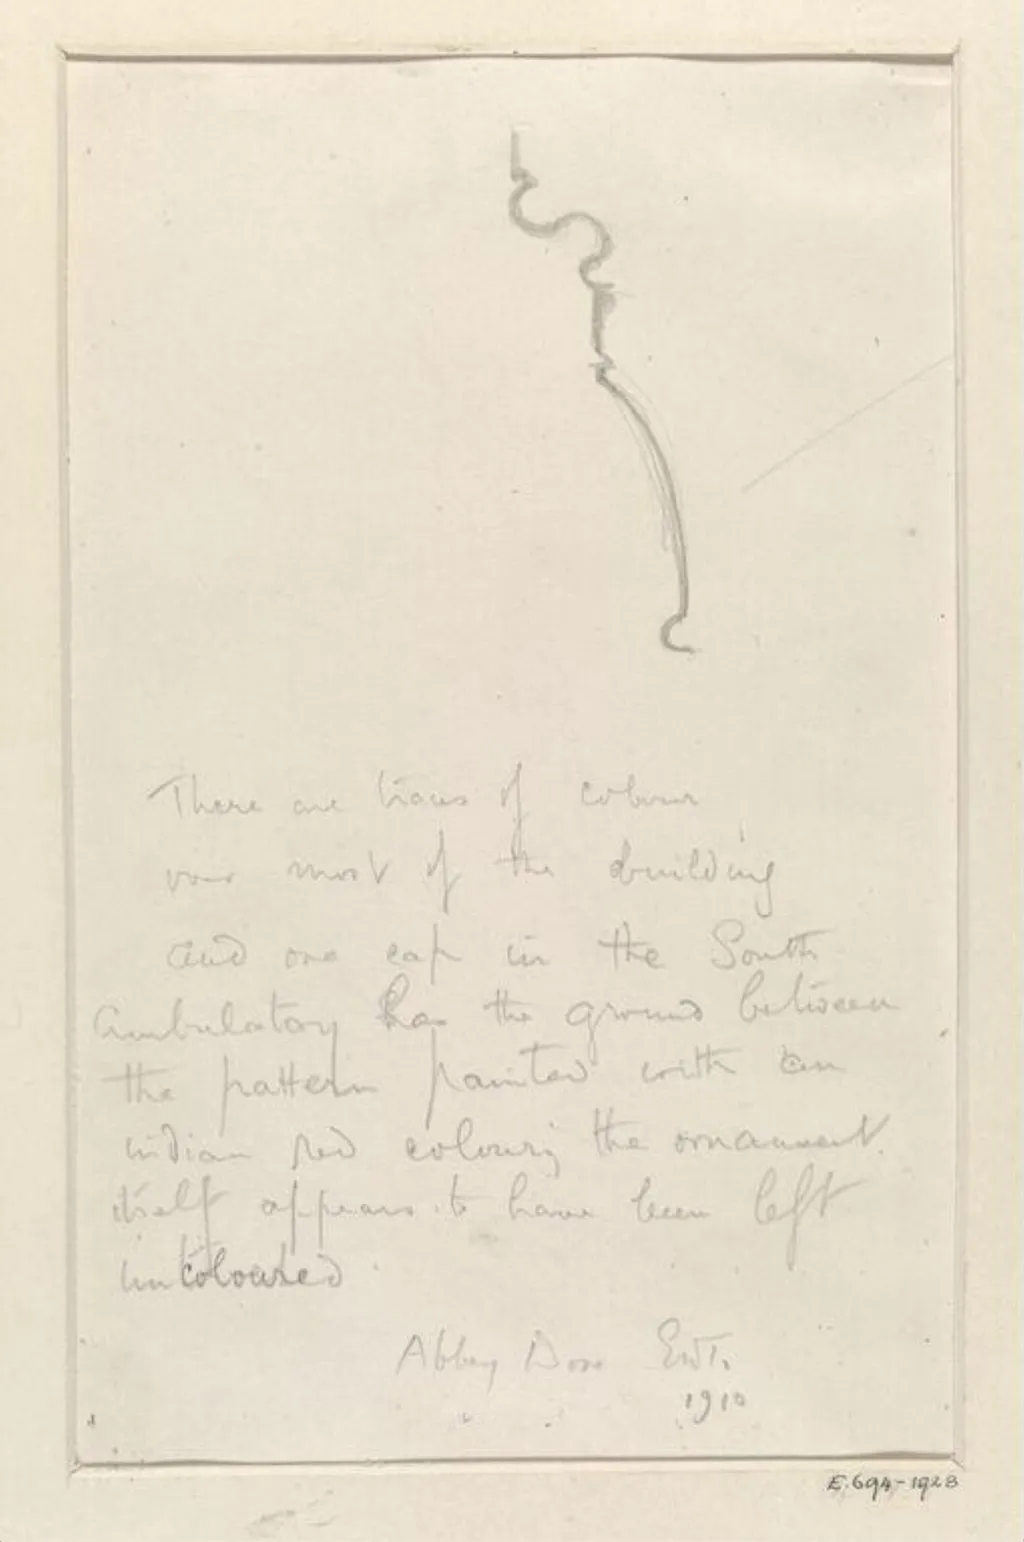 There are traces of colour
over most of the building
and one cap in the South
Ambulatory has the ground between
the pattern painted with an
indian red colour; the ornament
itself appears to have been left
uncoloured
Abbey Dore EWT.
1910
E.694-1928